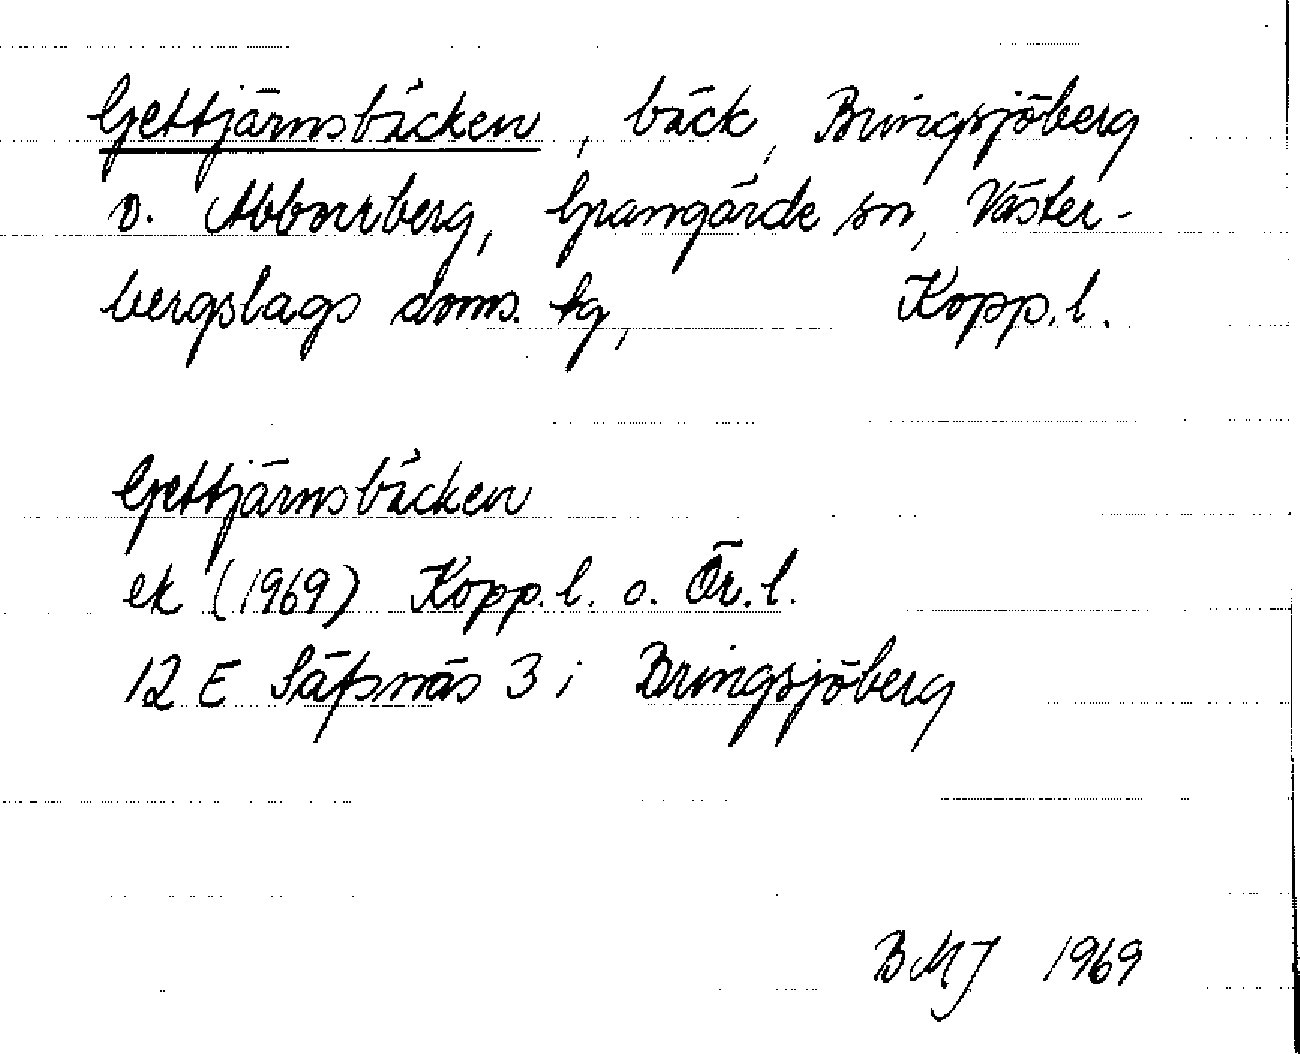 Gettjärnsbäcken, bäck, Bringsjöberg
o. Abborrberg, Grangärde sn, Väster-
bergslags doms. fg, Kopp. l.
Gettjärnsbäcken
ek (1969) Kopp. l. o. Ör. l.
12 E Säfsnäs 3 i Bringsjöberg
BMJ 1969